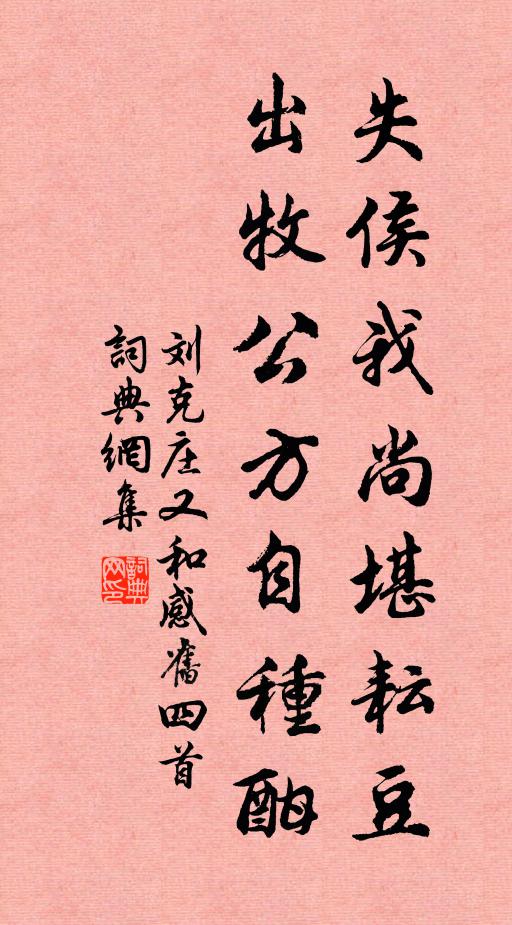 失侯我尚堪耘豆
出牧公方自種酣
刘克庄又和感舊四首
詞典網集
詞典网印